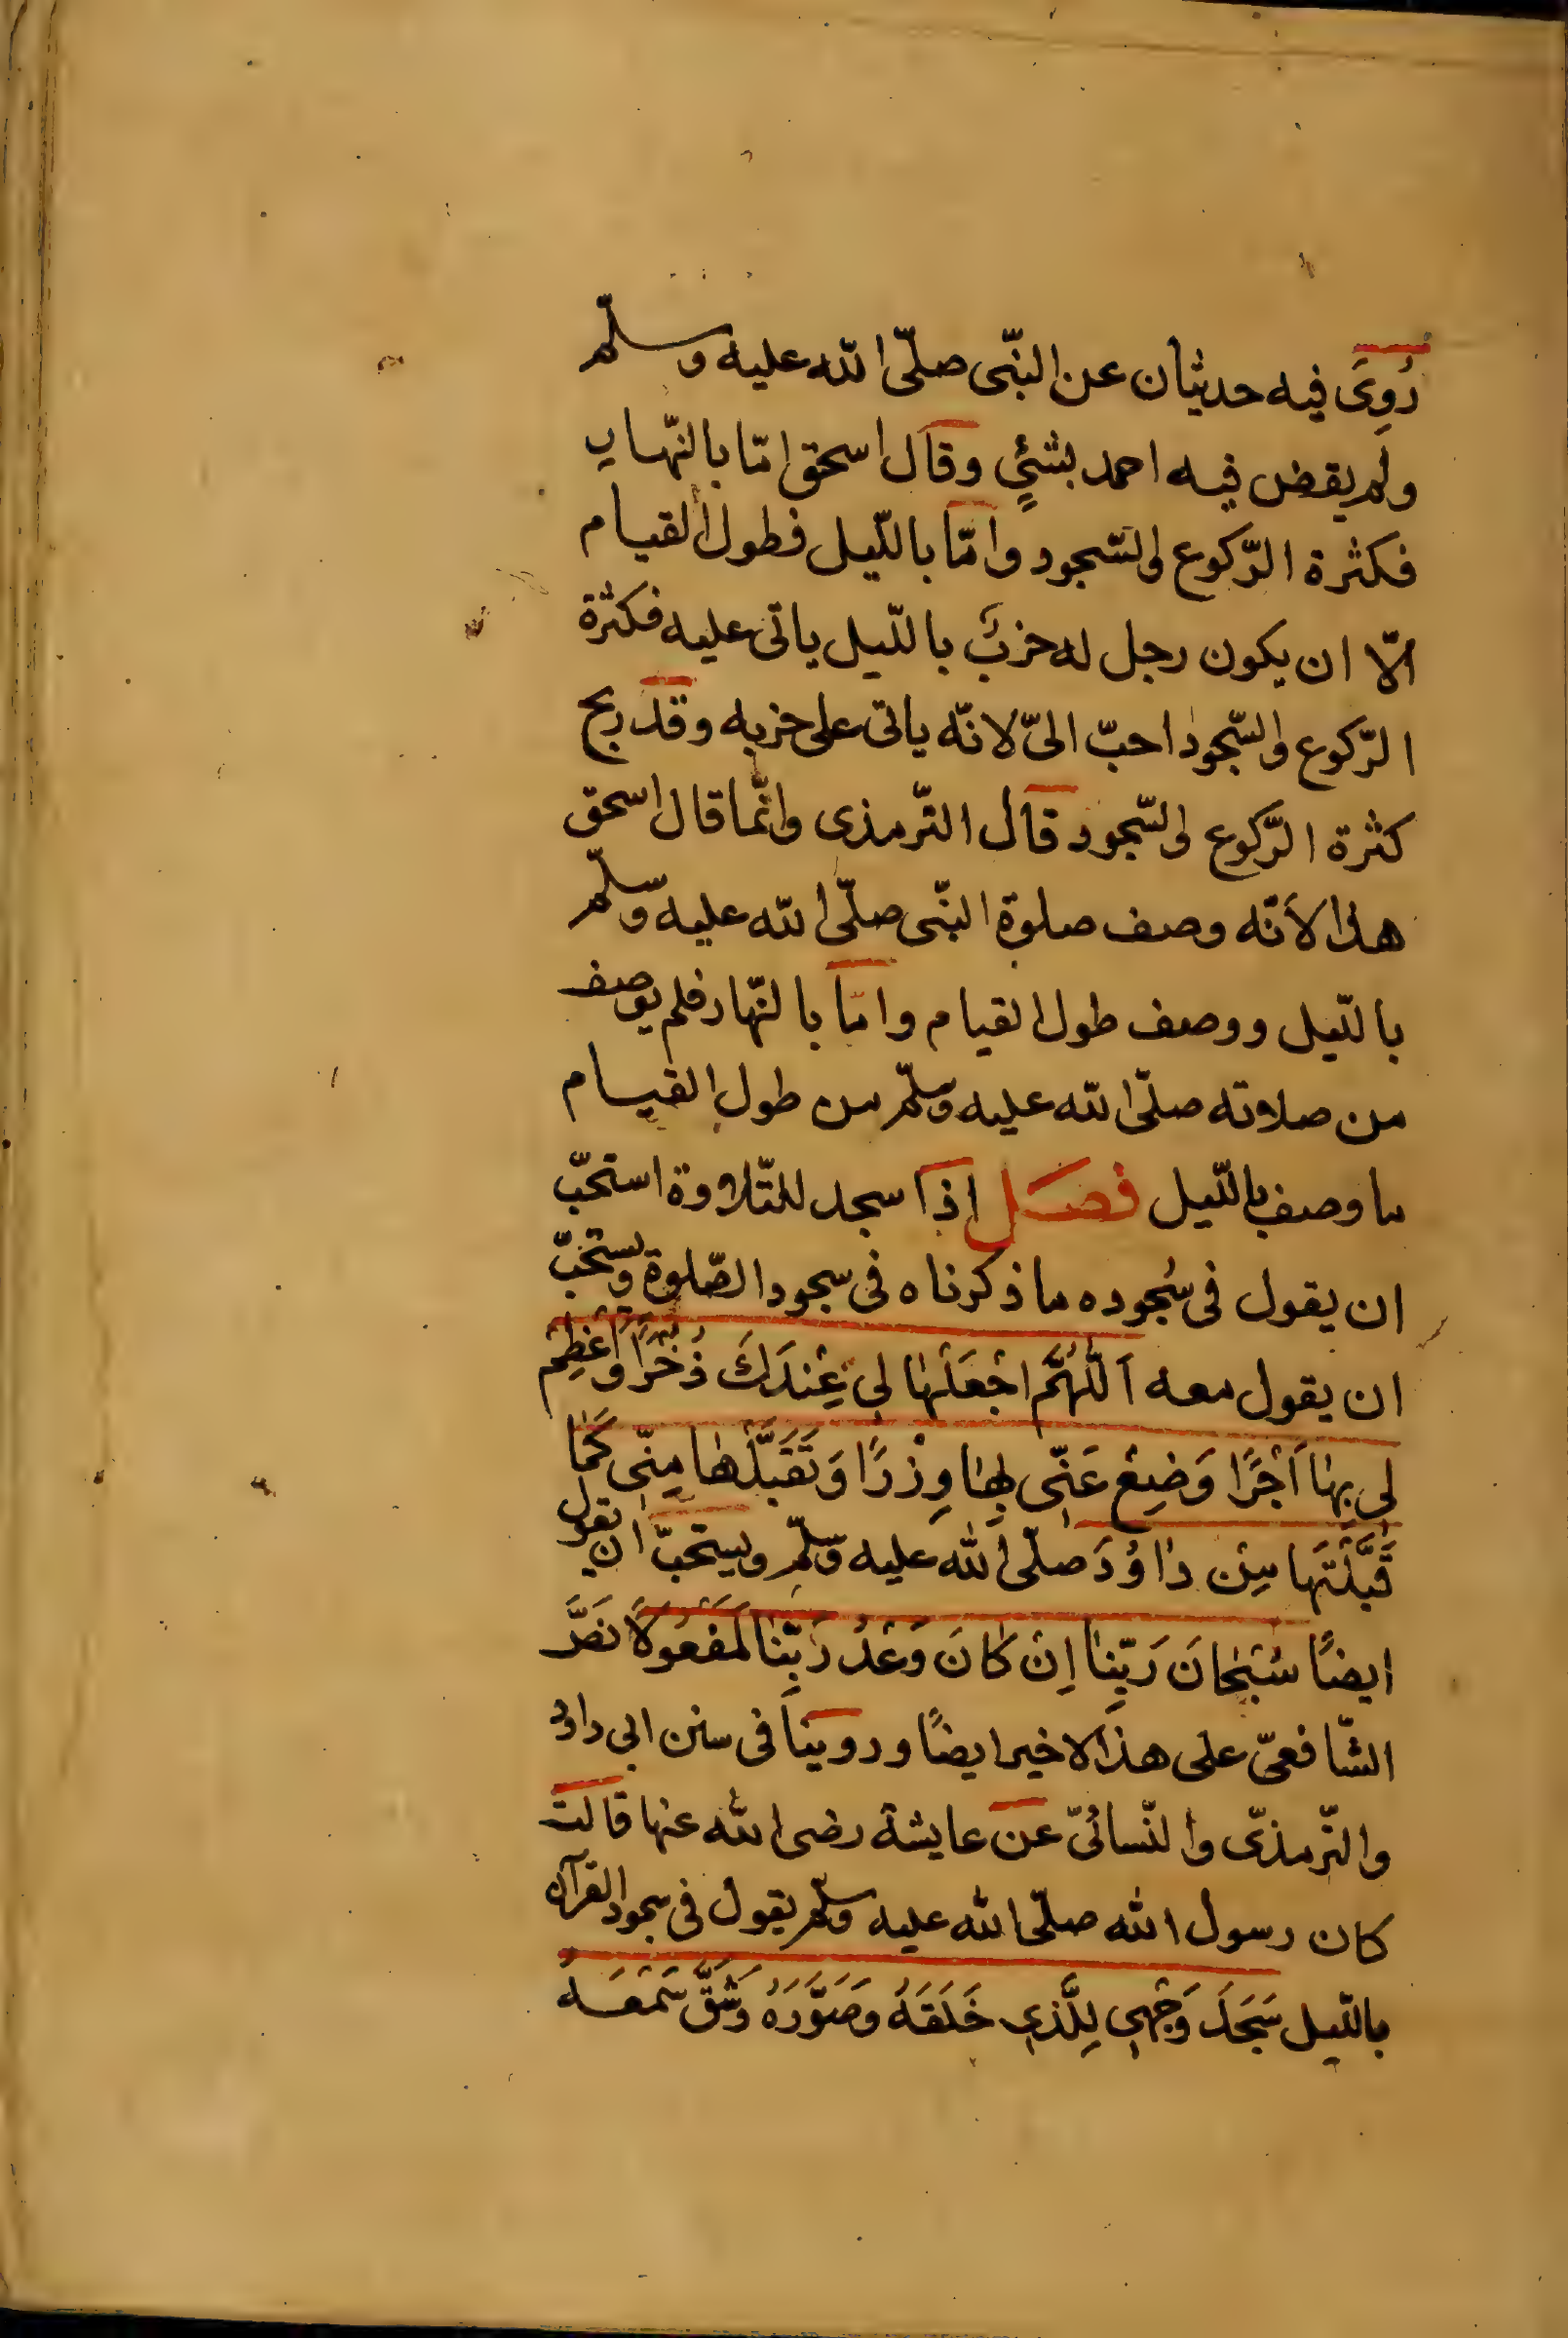 رُوِىَ فيه حديثان عن النّبى صلّى الله عليه وسلّم
ولم يقض فيه احمد بشئٍ وقال اسحق امّا بالنّهار
فكثرة الرّكوع والسّجود وامّا باللّيل فطول القيام
الّا ان يكون رجل له حزبٌ باللّيل ياتى عليه فكثرة
الرّكوع والسّجود احبّ الىّ لانّه ياتى على حزبه وقد ربح
كثرة الرّكوع والسّجود قال التّرمذى وانّما قال اسحق
هذا لأنّه وصف صلوة النّبى صلّى الله عليه وسلّم
باللّيل ووصف طول القيام وامّا بالنّهار فلم يوصف
من صلاته صلّى الله عليه وسلّم من طول القيام
ما وصف باللّيل فصل اذا سجد للتّلاوة استحبّ
ان يقول فى سُجوده ما ذكرناه فى سجود الصّلوة ويستحبّ
ان يقول معه اَللّٰهُمَّ اجْعَلْهَا لِي عِنْدَكَ ذُخْرًا وَاَعْظِمْ
لِي بِهَا اَجْرًا وَضَعْ عَنِّى بِهَا وِزْرًا وَتَقَبَّلْهَا مِنِّى كَمَا
قَبَّلْتَهَا مِنْ دَاوُدَ صلّى الله عليه وسلّم ويستحبّ ان يقول
ايضًا سُبْحَانَ رَبِّنَا اِنْ كَانَ وَعْدُ رَبِّنَا لَمَفْعُوْلًا نَصَّ
الشّافعىّ على هذا الاخير ايضًا وروينا فى سنن ابى داود
والتّرمذىّ والنّسائىّ عن عايشة رضى الله عنها قالت
كان رسول الله صلّى الله عليه وسلّم يقول فى سجود القرآن
باللّيل سَجَدَ وَجْهِي لِلَّذِي خَلَقَهُ وَصَوَّرَهُ وَشَقَّ سَمْعَهُ